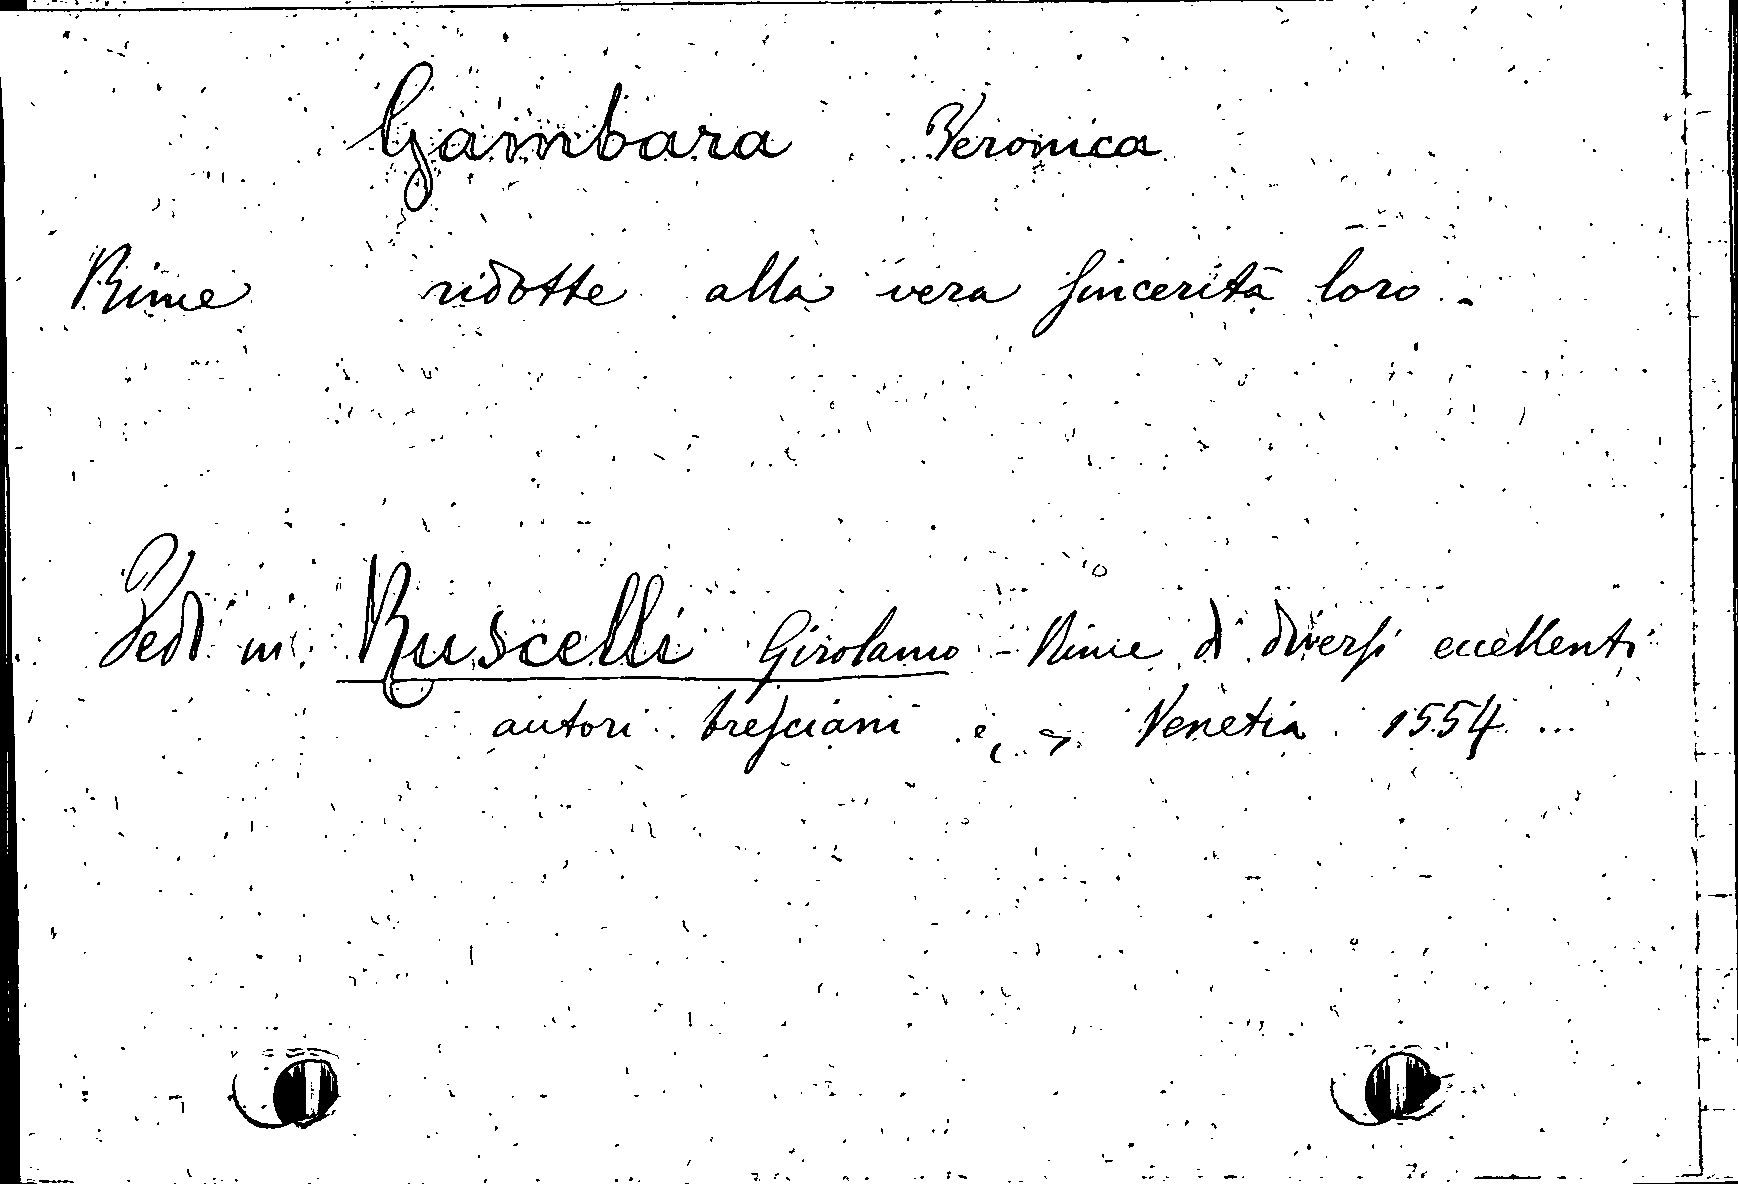 Gambara Veronica
Rime ridotte alla vera sincerità loro -
Vedi in Ruscelli Girolamo - Rime di diversi eccellenti
autori bresciani Venetia 1554 ...